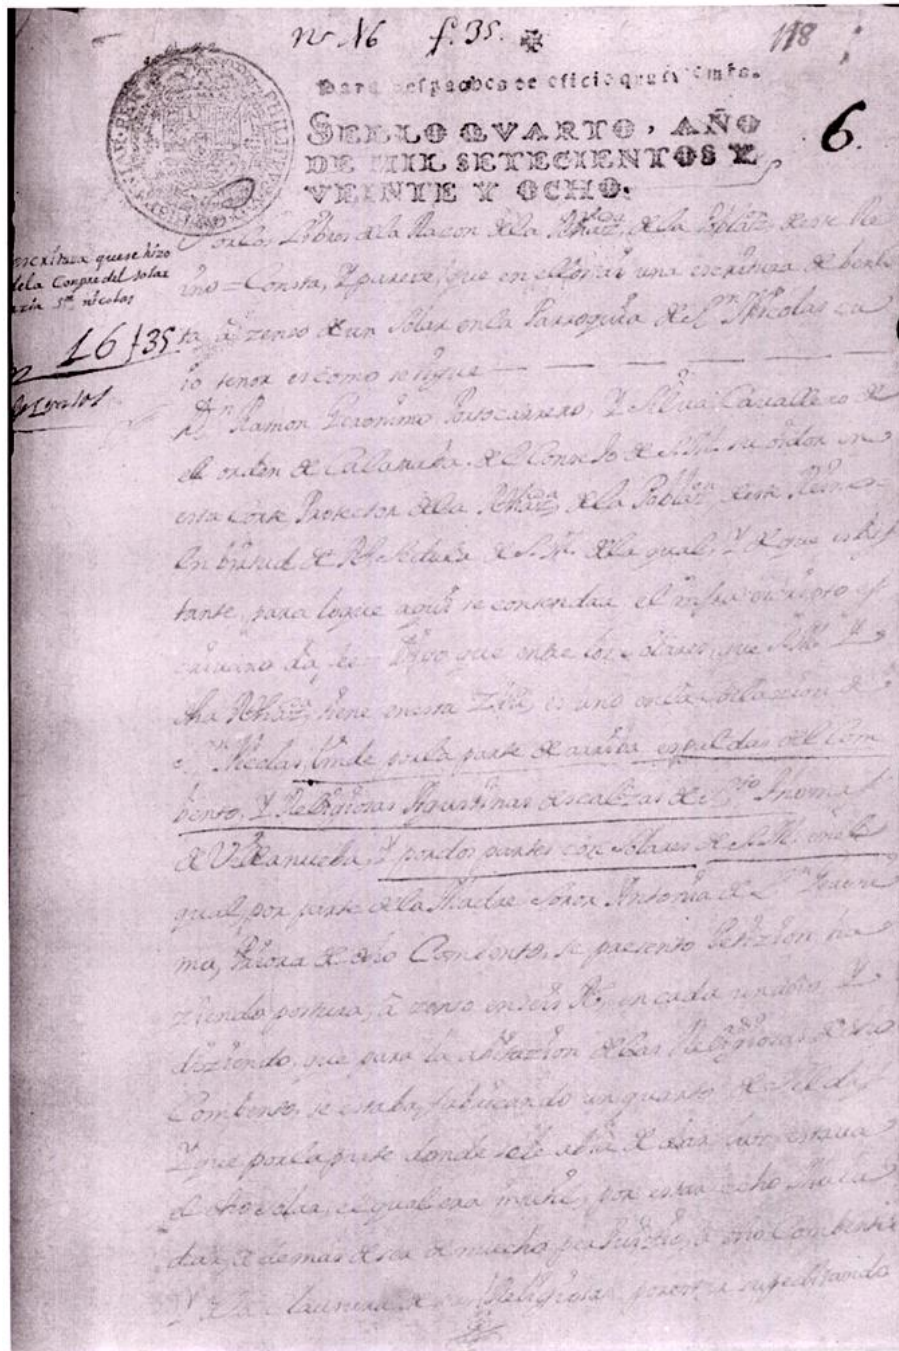 nº N6 f. 35. 118
Para despachos de oficio quatro mrs.
SELLO QVARTO, AÑO
DE MIL SETECIENTOS Y
VEINTE Y OCHO.
6.
escritura que se hizo
dela Compra del solar
nicolas
16 f 35
Por los Libros dela Razon dela de la Poblaz.on deste Re
ino = Consta, Y parece, que en ellos una escriptura de bent
ta a zenso de un Solar en la Parroquia de S.n Nicolas cu
io tenor es como se sigue
D.n Ramon Geronimo Portocarrero, Y Silva Cavallero de
el orden de Calatrava del Consejo de S.M. su oidor en
esta Corte Protector dela de la Poblaz.on deste Reino
En birtud de de S.M. dela qual, Y de que es bas
tante para loque aqui se contendra el infra escripto es
crivano da fee Digo que entre los solares que S.M. Y
dha tiene en esta es uno en la Colazion de
S.n Nicolas, linde por la parte de arriba espaldas del Com
bento, Y Religiosas Agustinas descalzas de S.to Thomas
de Villanueba, Y por dos partes con Solares de S.M. en el
qual, por parte dela Madre Soror Antonia de S.n
ma, Priora de dho Combento, se presento Petizion ha
ziendo postura, a zenso en seis en cada un año, Y
diziendo, que para la abitazion delas Religiosas de dho
Combento, se estaba fabricando un quarto de Zeldas
Y que por la parte donde se le abia de dar luz estava
el dho solar, el qual era por estar hecho Mula
dar, demas de ser de mucho perjuizio, a dho Combento
Y dela Clausura de sus Religiosas